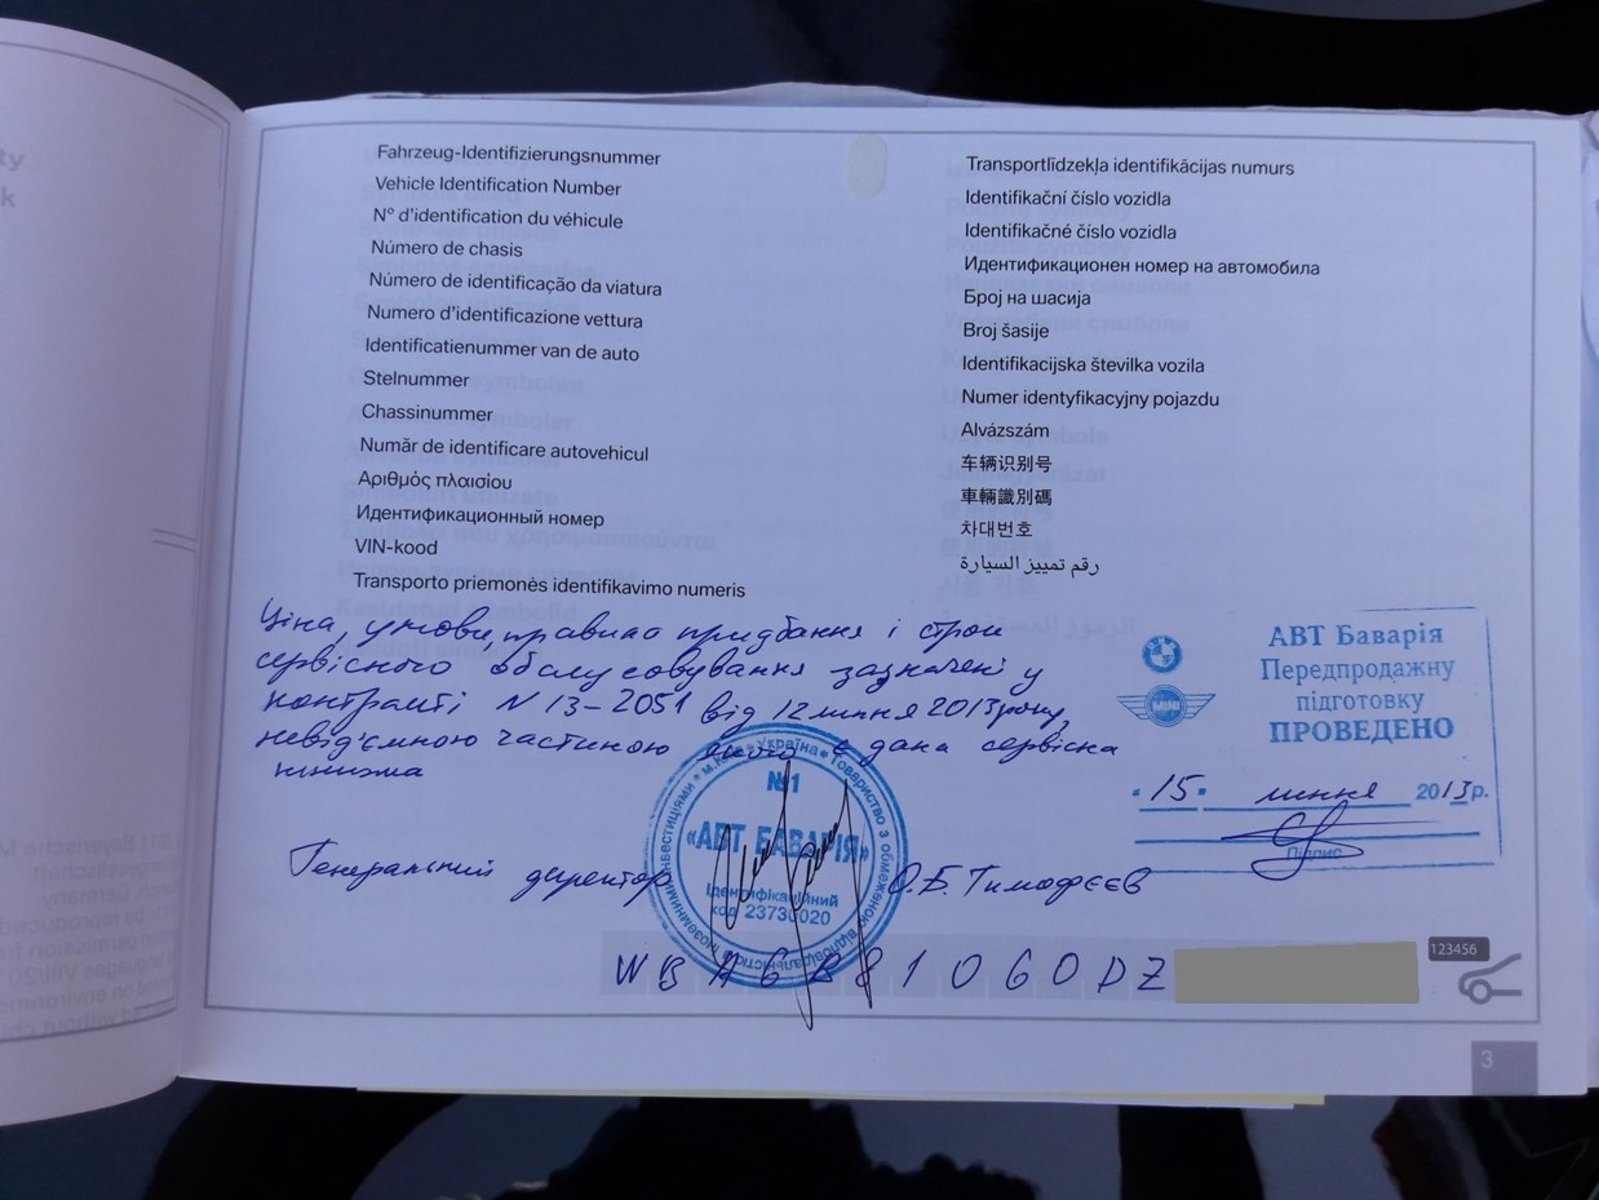 ty
k
Fahrzeug-Identifizierungsnummer
Vehicle Identification Number
N° d'identification du véhicule
Número de chasis
Número de identificação da viatura
Numero d'identificazione vettura
Identificatienummer van de auto
Stelnummer
Chassinummer
Număr de identificare autovehicul
Αριθμός πλαισίου
Идентификационный номер
VIN-kood
Transporto priemonės identifikavimo numeris
Transportlīdzekļa identifikācijas numurs
Identifikační číslo vozidla
Identifikačné číslo vozidla
Идентификационен номер на автомобила
Број на шасија
Broj šasije
Identifikacijska številka vozila
Numer identyfikacyjny pojazdu
Alvázszám
车辆识别号
車輛識別碼
차대번호
رقم تمييز السيارة
Ціна, умови, правила придбання і строк
сервісного обслуговування зазначені у
контракті N 13-2051 від 12 липня 2013 року,
невід'ємною частиною якого є дана сервісна
книжка
АВТ Баварія
Передпродажну
підготовку
ПРОВЕДЕНО
MINI
15 липня 2013р.
Підпис
Україна * Товариство з обмеженою відповідальністю з іноземними інвестиціями * м.Київ
№1
«АВТ БАВАРІЯ»
Ідентифікаційний
код 23736020
Генеральний директор О.Б. Тимофєєв
WBA6B81060DZ
123456
3